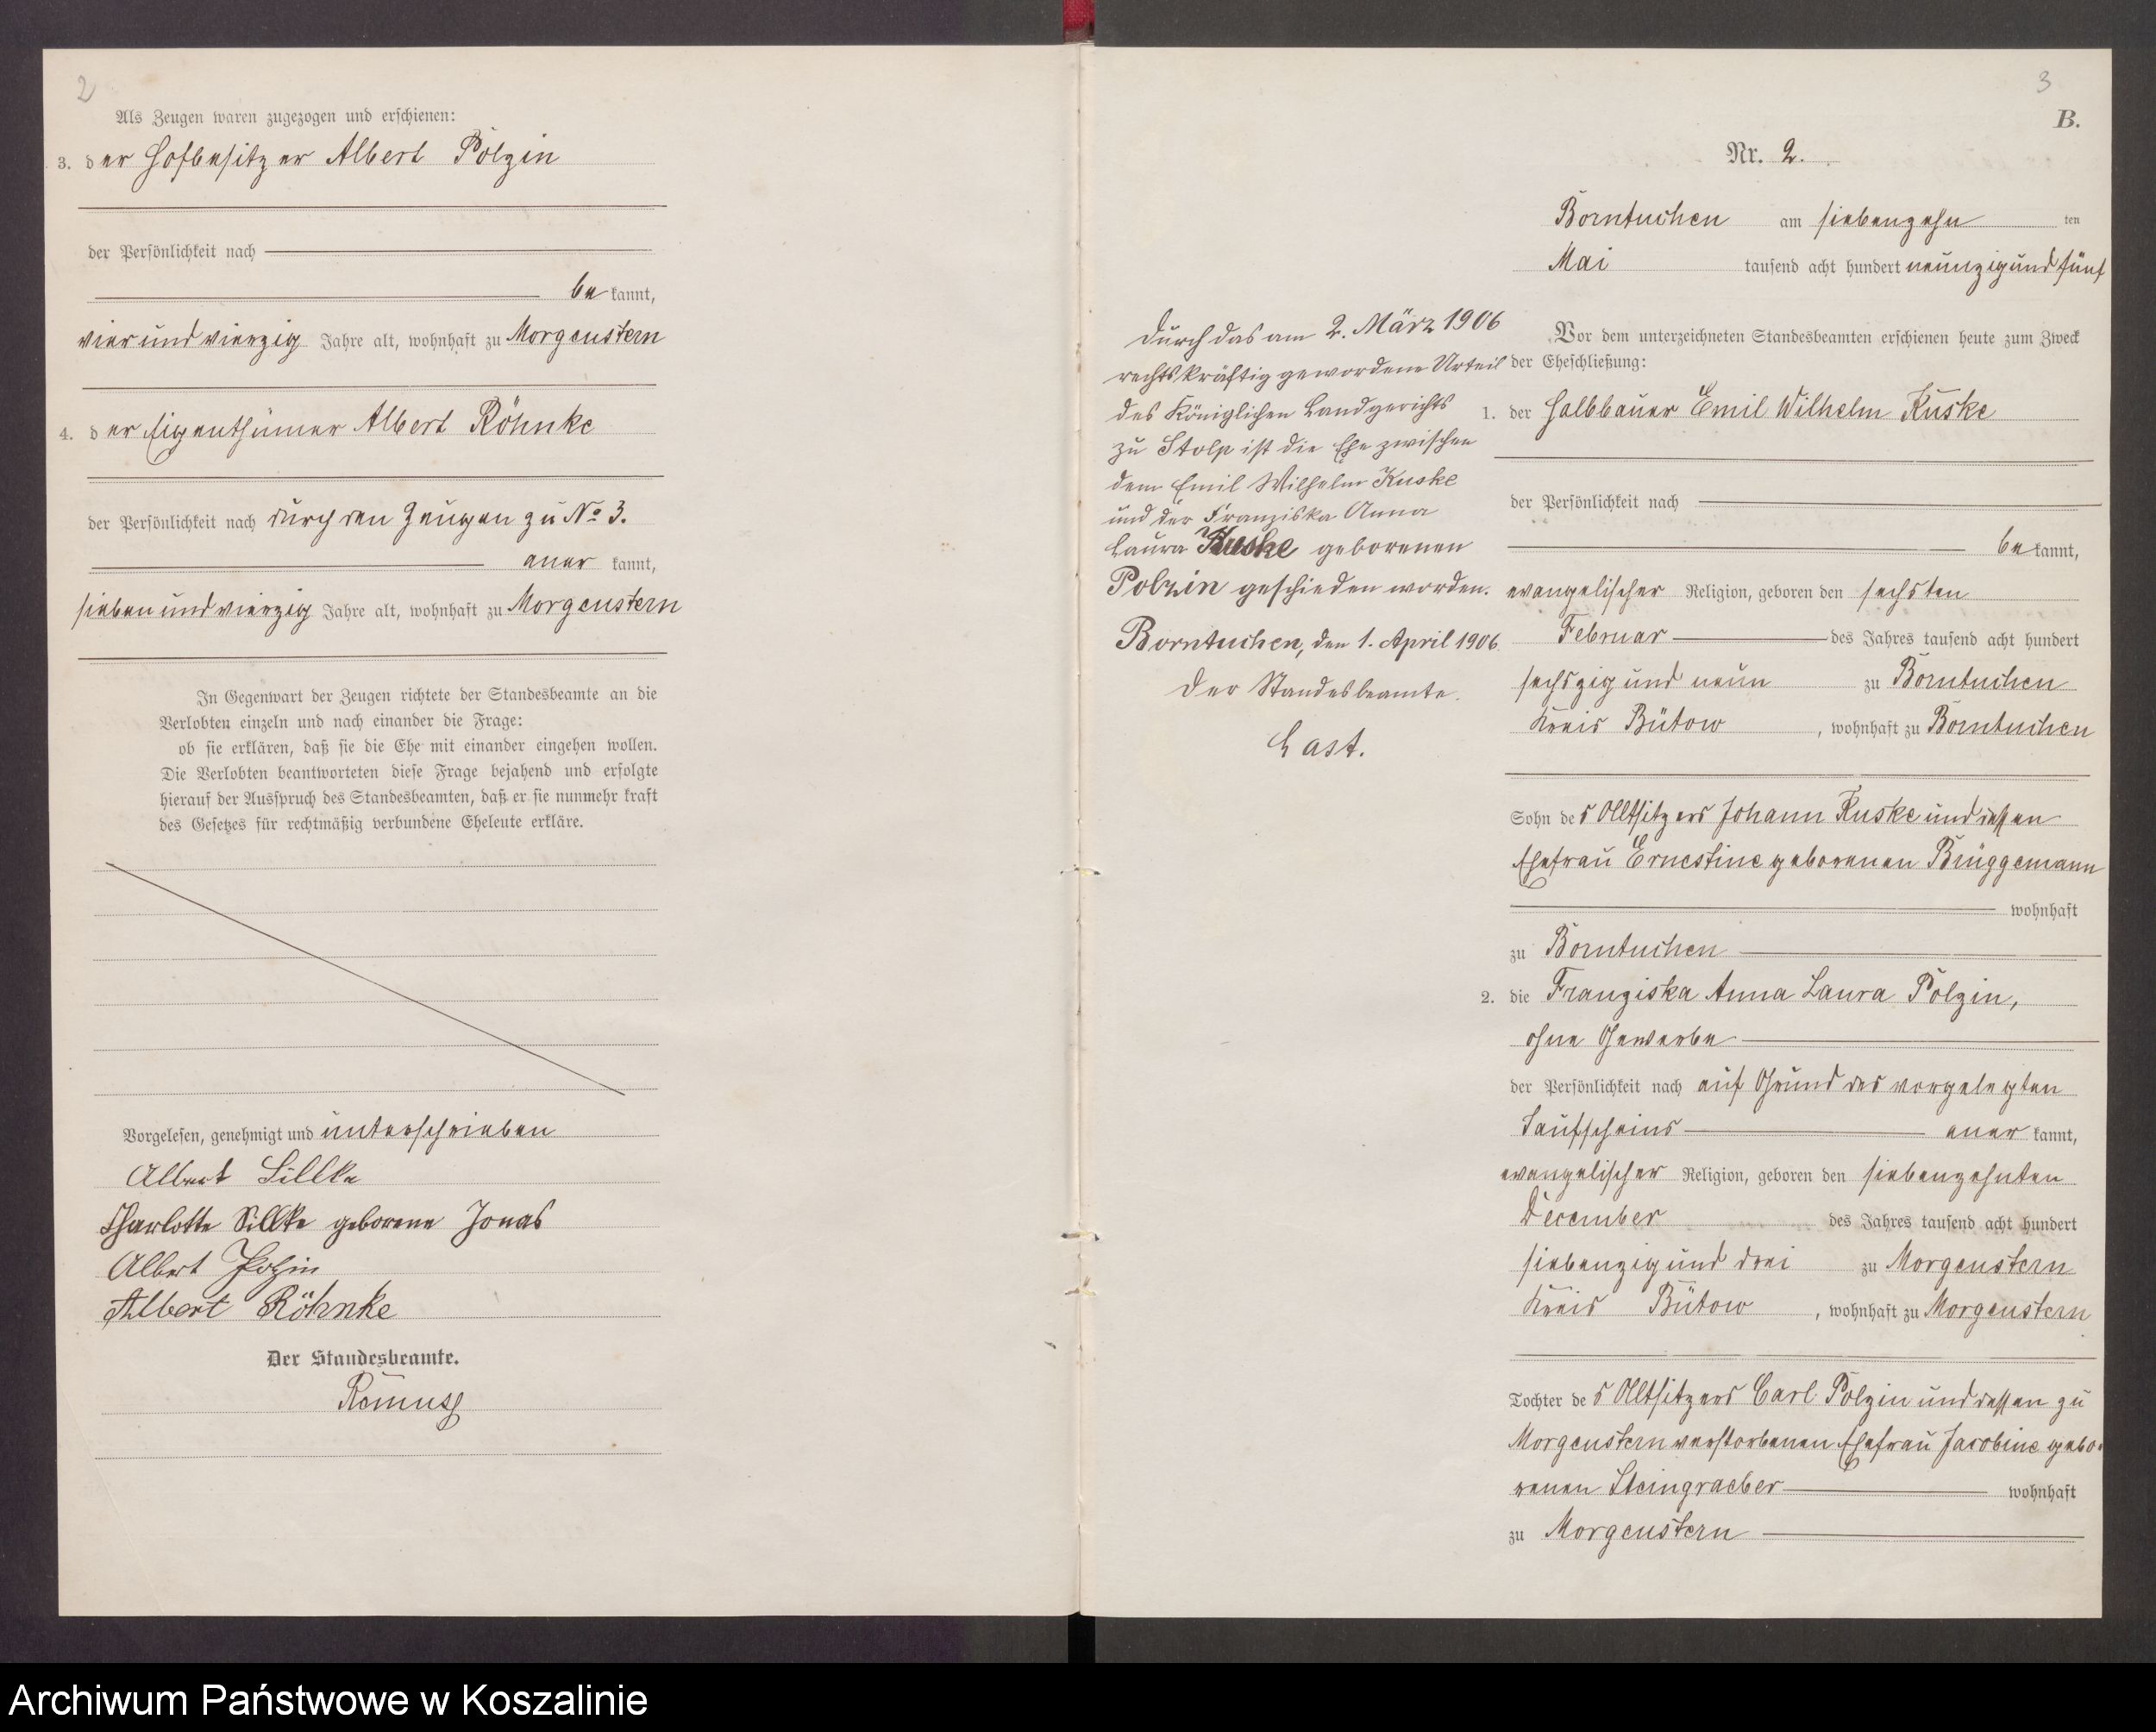 2
Als Zeugen waren zugezogen und erschienen:
3. der Hofbesitzer Albert Polzin
der Persönlichkeit nach
be kannt,
vierundvierzig Jahre alt, wohnhaft zu Morgenstern
4. der Eigenthümer Albert Röhnke
der Persönlichkeit nach durch den Zeugen zu No 3.
aner kannt,
siebenundvierzig Jahre alt, wohnhaft zu Morgenstern
In Gegenwart der Zeugen richtete der Standesbeamte an die
Verlobten einzeln und nach einander die Frage:
ob sie erklären, daß sie die Ehe mit einander eingehen wollen.
Die Verlobten beantworteten diese Frage bejahend und erfolgte
hierauf der Ausspruch des Standesbeamten, daß er sie nunmehr kraft
des Gesetzes für rechtmäßig verbundene Eheleute erkläre.
Vorgelesen, genehmigt und unterschrieben
Albert Sillke
Charlotte Sillke geborene Jonas
Albert Polzin
Albert Röhnke
Der Standesbeamte.
Remus
3
B.
Nr. 2.
Borntuchen am siebenzehn ten
Mai tausend acht hundert neunzigund fünf
Vor dem unterzeichneten Standesbeamten erschienen heute zum Zweck
der Eheschließung:
1. der Halbbauer Emil Wilhelm Kuske
der Persönlichkeit nach
be kannt,
evangelischer Religion, geboren den sechsten
Februar des Jahres tausend acht hundert
sechszig und neun zu Borntuchen
Kreis Bütow, wohnhaft zu Borntuchen
Sohn des Altsitzers Johann Kuske und dessen
Ehefrau Ernestine geborenen Brüggemann
wohnhaft
zu Borntuchen
2. die Franziska Anna Laura Polzin,
ohne Gewerbe
der Persönlichkeit nach auf Grund des vorgelegten
Taufscheins aner kannt,
evangelischer Religion, geboren den siebenzehnten
December des Jahres tausend acht hundert
siebenzig und drei zu Morgenstern
Kreis Bütow, wohnhaft zu Morgenstern
Tochter des Altsitzers Carl Polzin und dessen zu
Morgenstern verstorbenen Ehefrau Jacobine gebo-
renen Steingraeber wohnhaft
zu Morgenstern
Durch das am 2. März 1906
rechtskräftig gewordene Urteil
des Königlichen Landgerichts
zu Stolp ist die Ehe zwischen
dem Emil Wilhelm Kuske
und der Franziska Anna
Laura Kuske geborenen
Polzin geschieden worden.
Borntuchen, den 1. April 1906.
Der Standesbeamte.
Last.
Archiwum Państwowe w Koszalinie